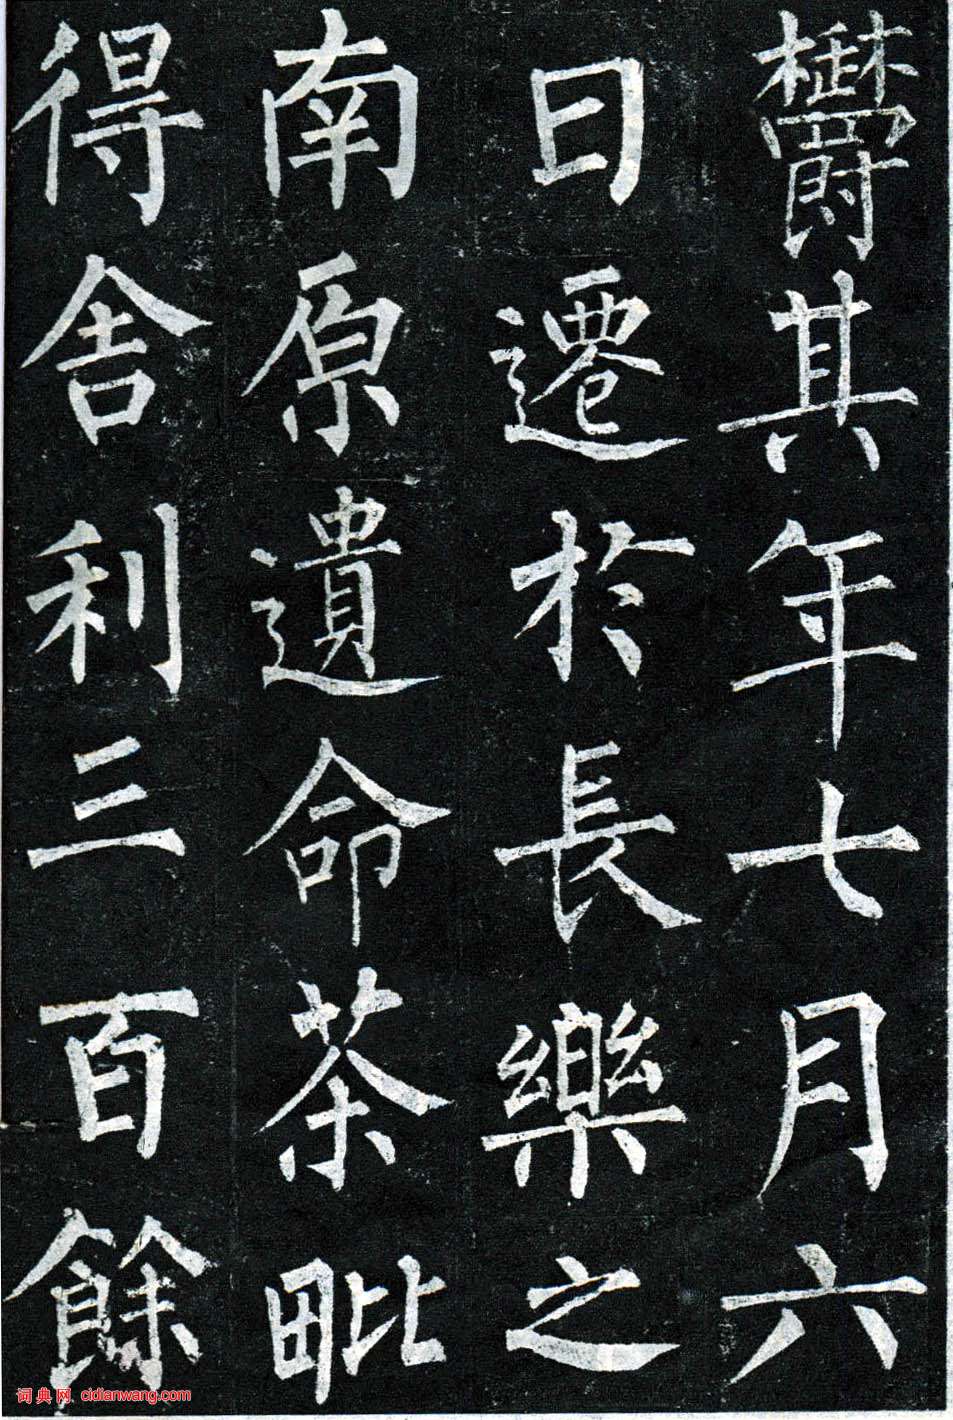 鬱其年七月六
日遷於長樂之
南原遺命茶毗
得舍利三百餘
词典网 cidianwang.com